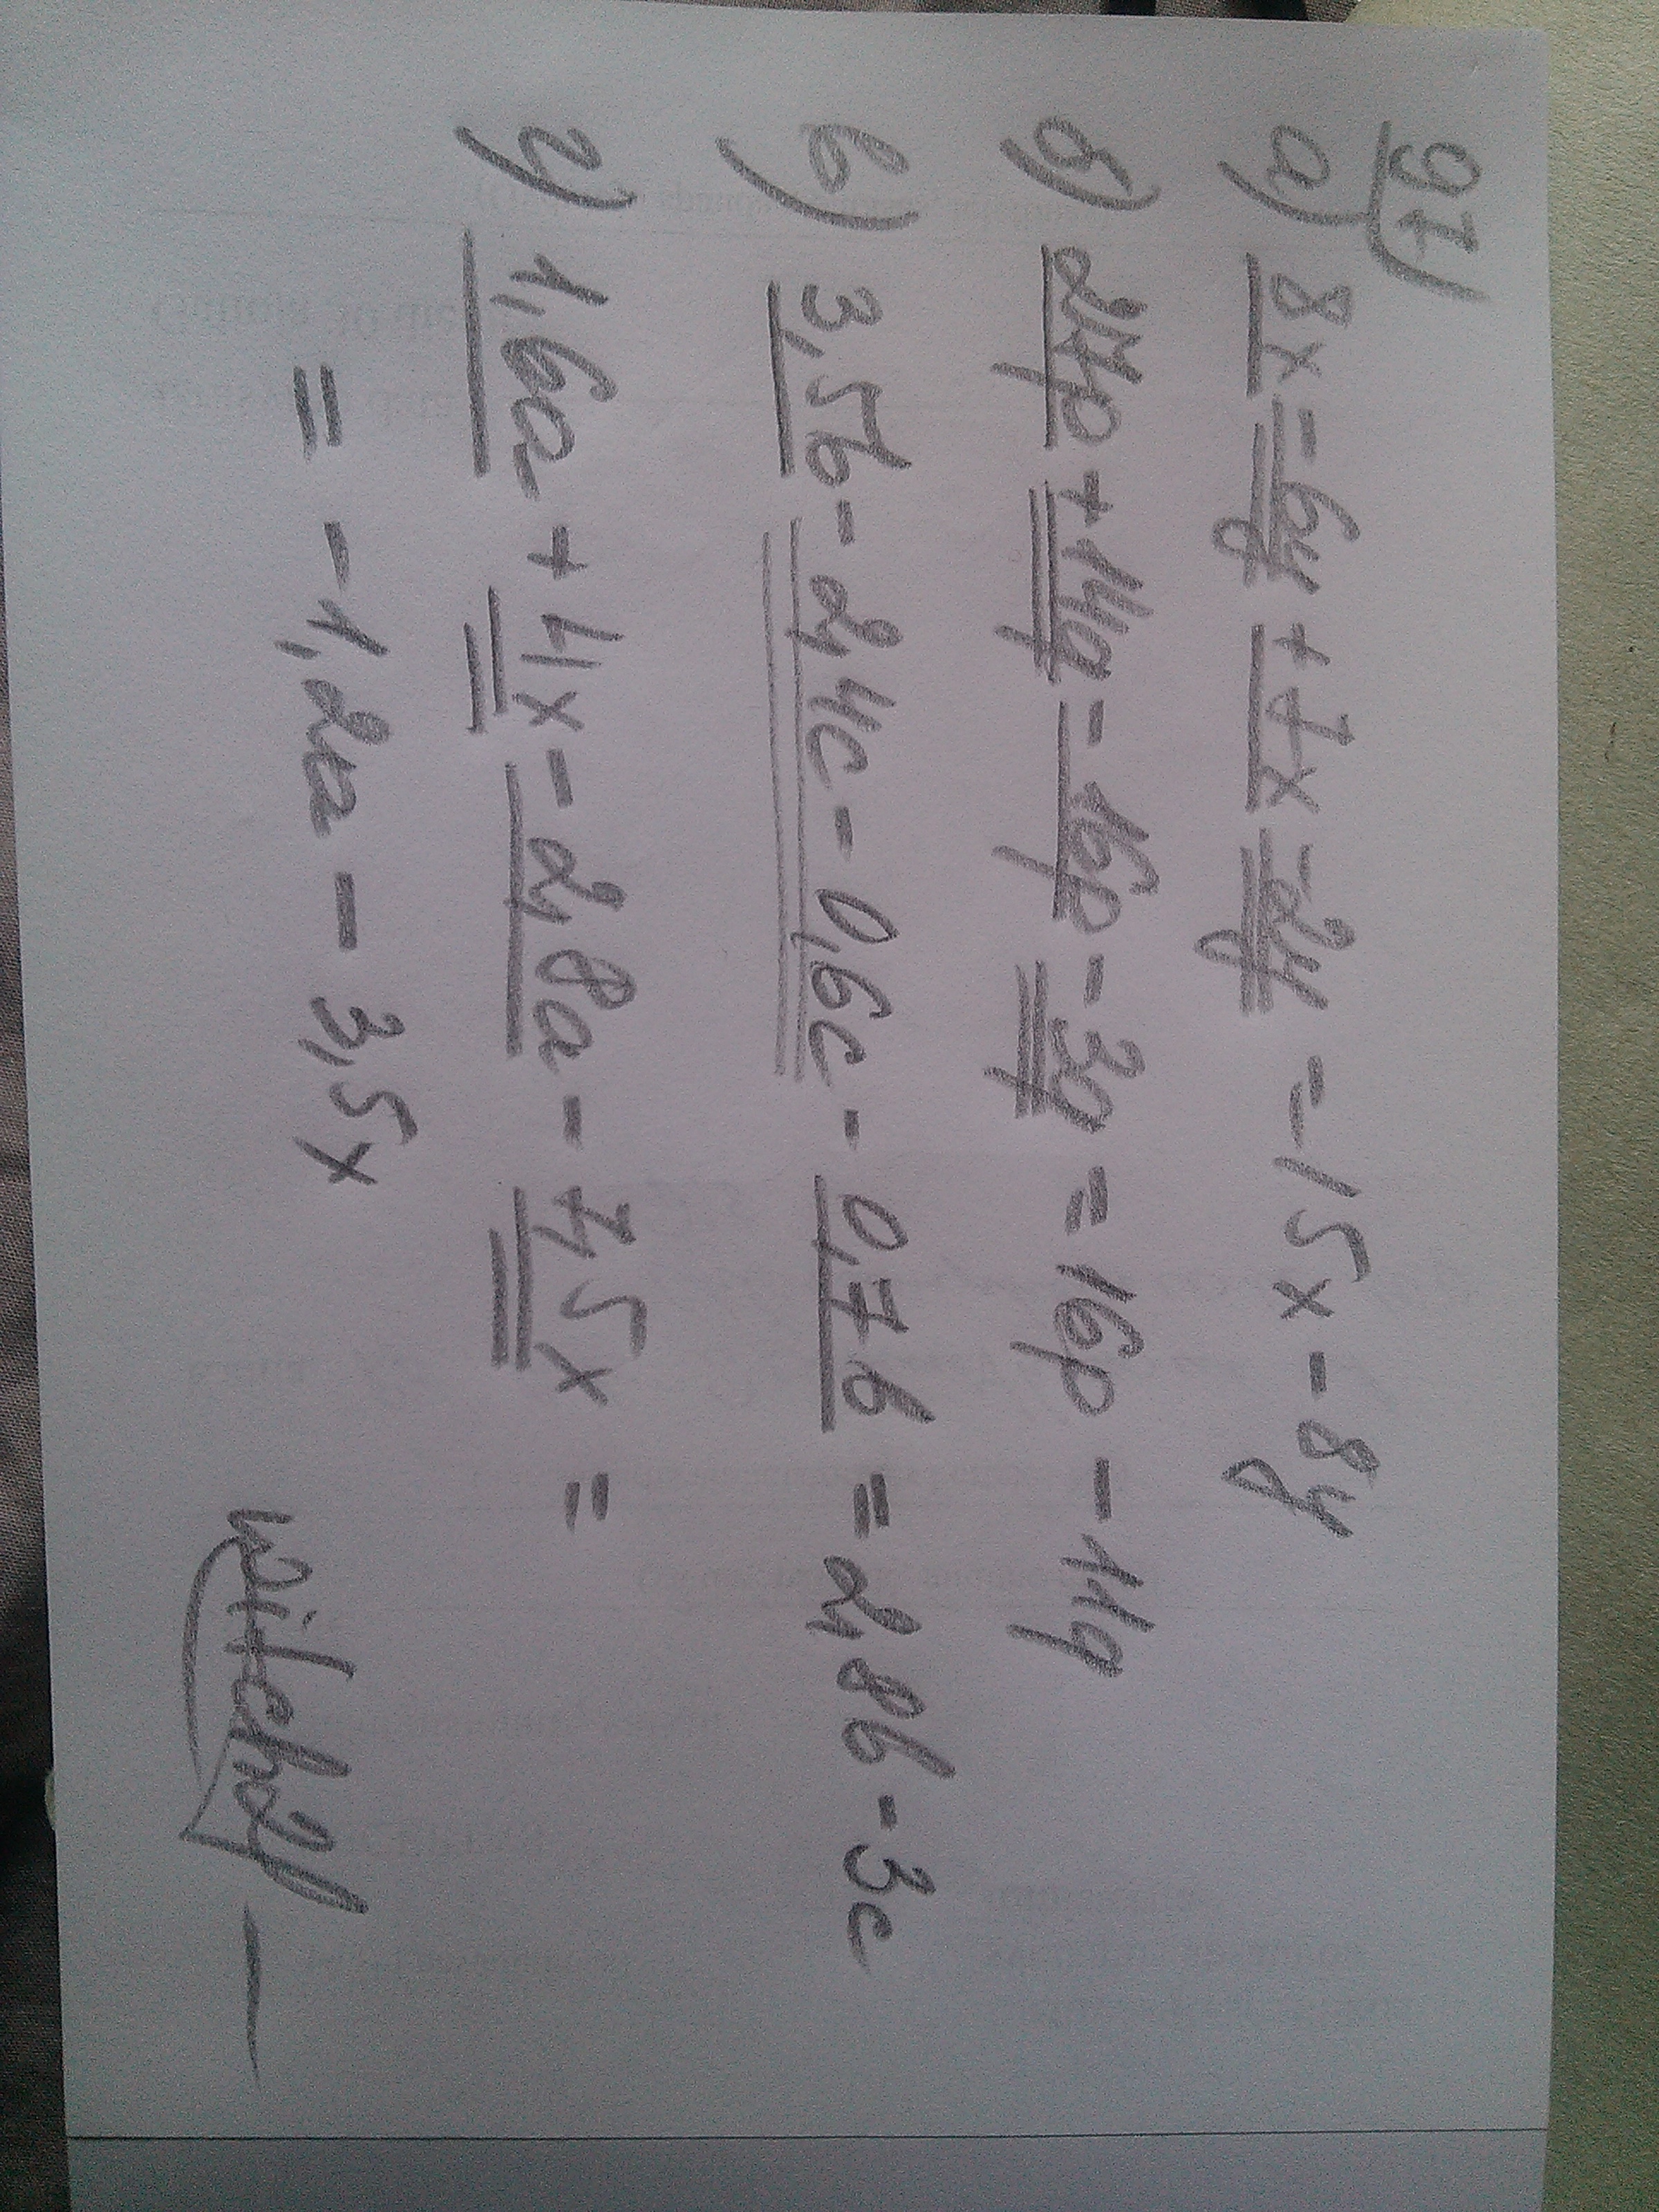 97)
а) 8x - 6y + 7x - 2y = 15x - 8y
б) 27p + 14q - 16p - 3q = 16p - 11q
в) 3,5b - 2,4c - 0,6c - 0,7b = 2,8b - 3c
г) 1,6a + 4x - 2,8a - 7,5x =
= - 1,2a - 3,5x